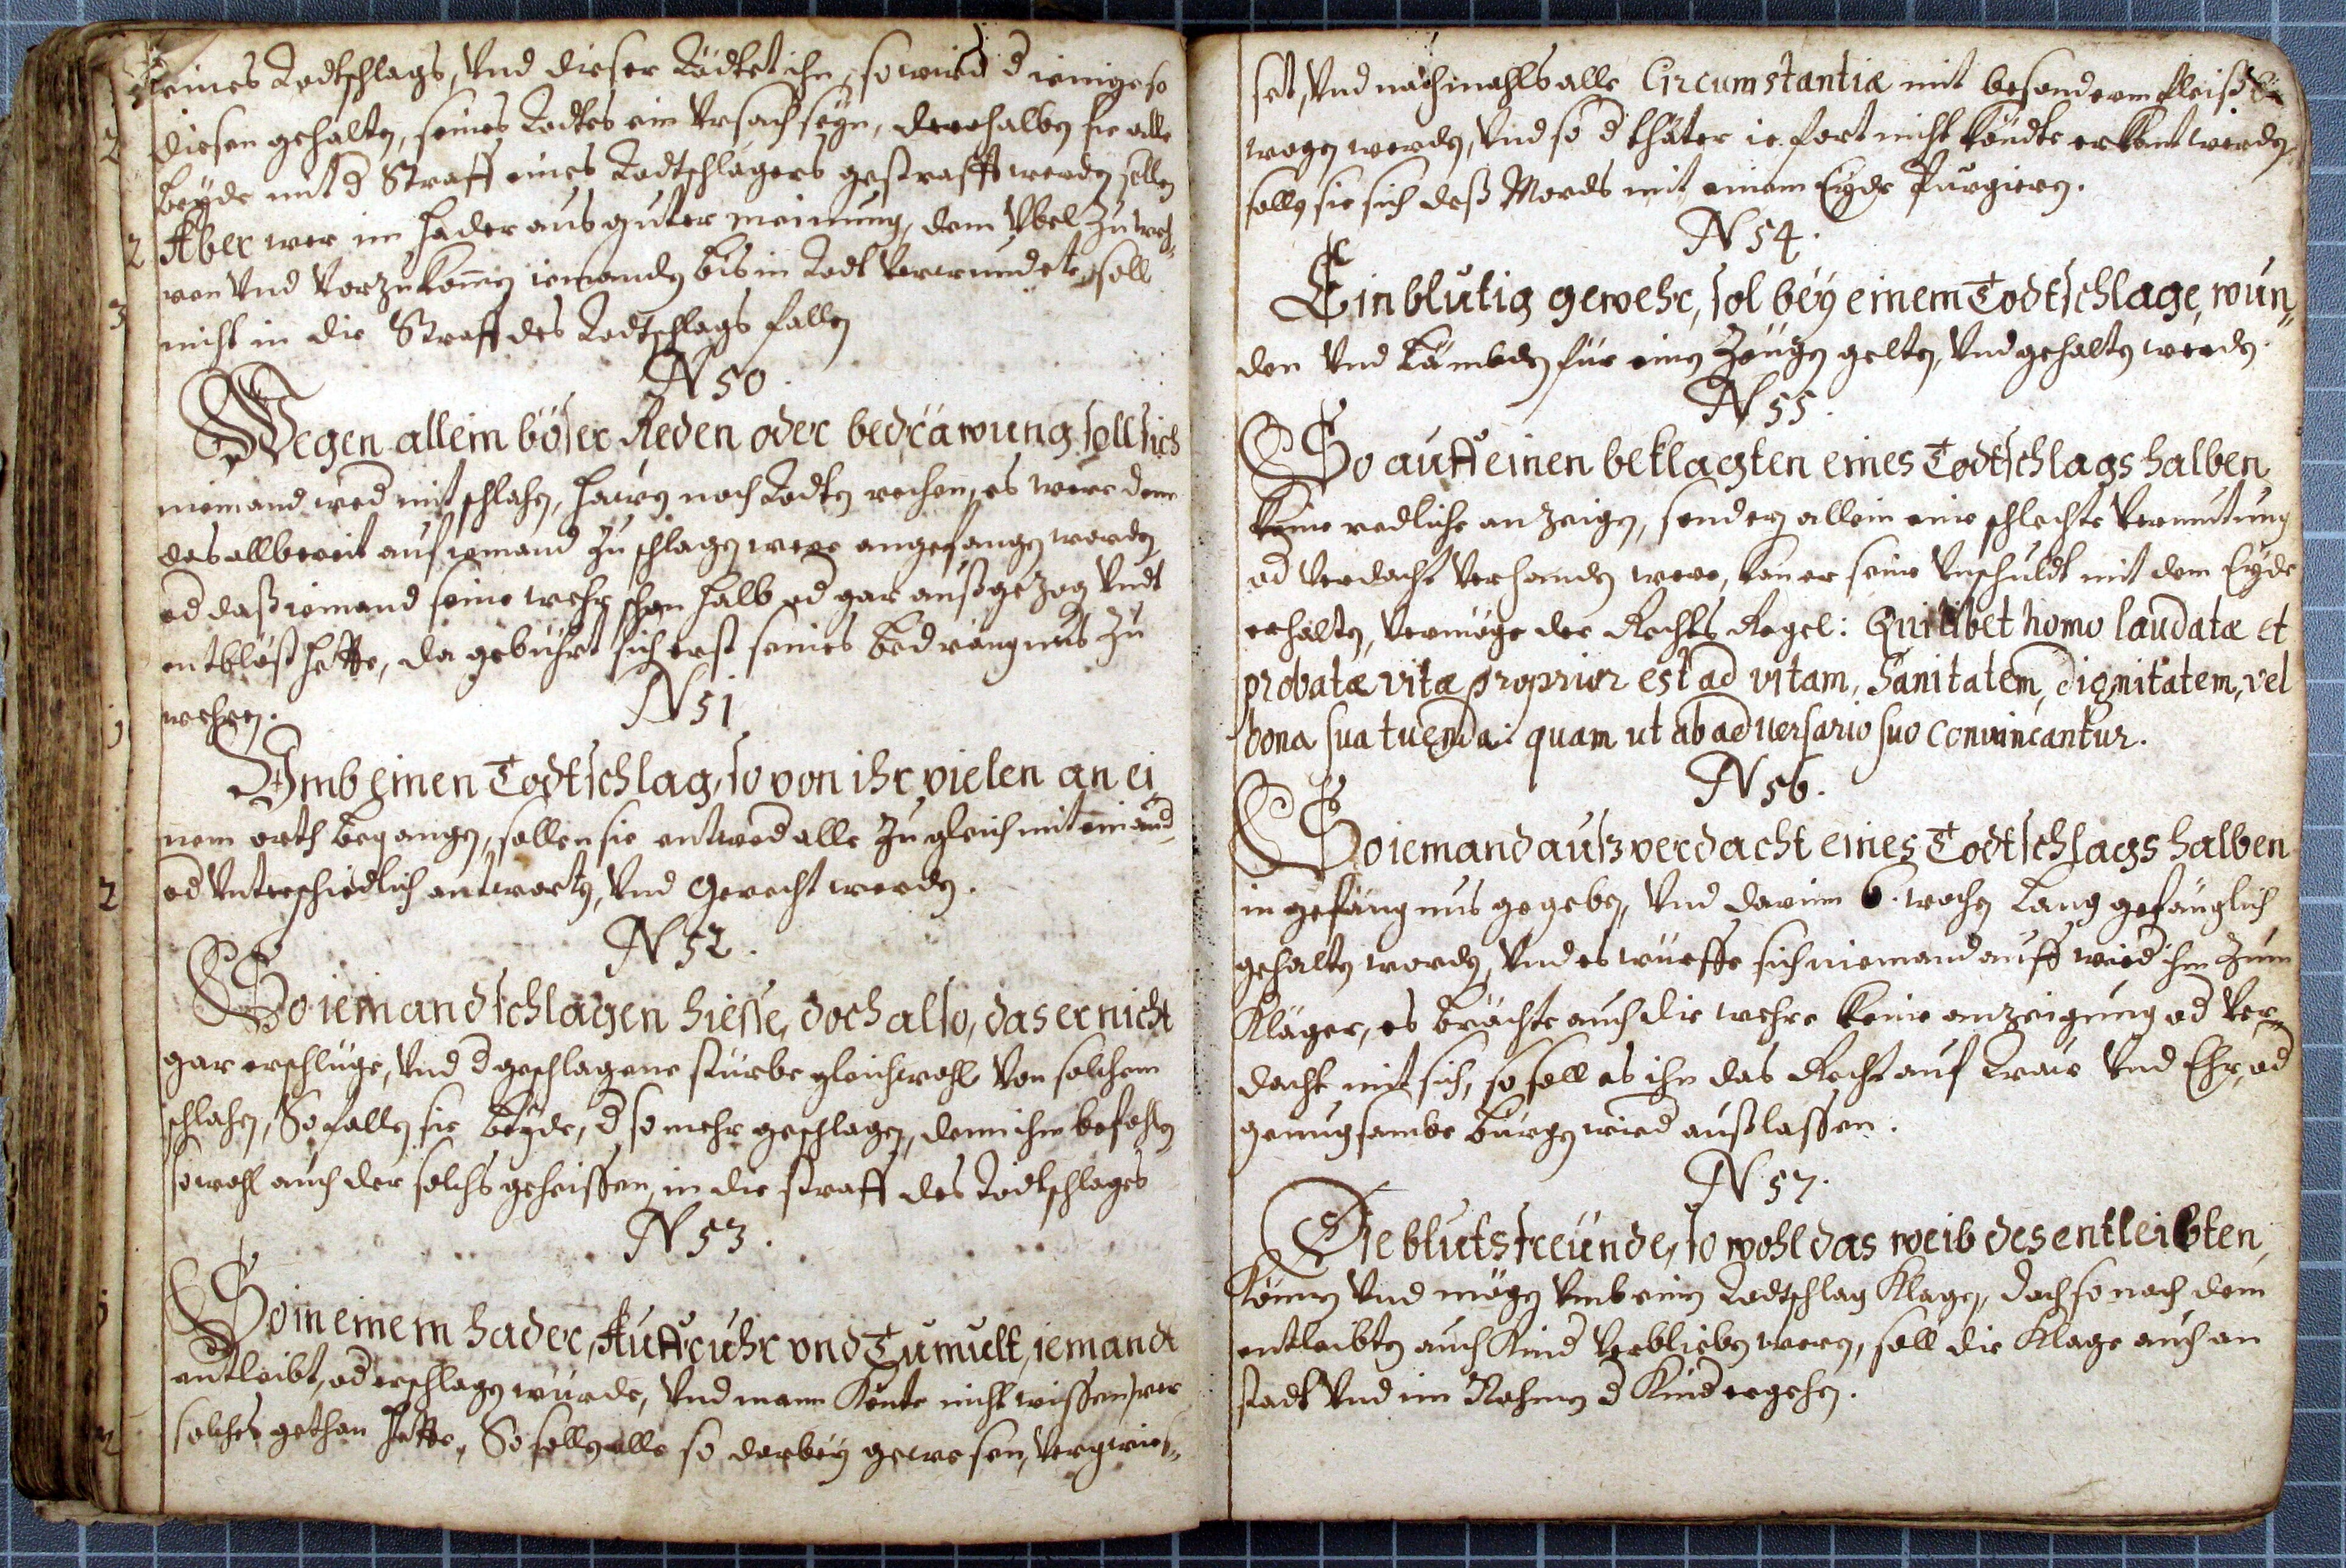 eines Todtschlags, Vnd dieser Tödtet ihn, so wird d ienige so
diesen gehalten, seines Todtes ein Vrsach seyn, derohalben sie alle
beyde mit d Straff eines Todtschlägers gestrafft werden sollen
Aber wer im hader aus guter meinung, dem Vbel zu weh-
ren Vnd Vorzukommen iemanden bis in Todt Verwundete, soll
nicht in die Straff des Todtschlags fallen
N 50.
Wegen allein böser Reden oder bedräwung soll sich
niemand wed mit schlahen, hawen noch Todten rechen, es were denn
das allbereit auf iemand zu schlagen were angefangen worden
od daß iemand seine wehr schon halb od gar außgezog Vndt
entblöst hette, da gebührt sich erst seines bedrängnus zu
wehren.
N 51
Vmb einen Todtschlag, so von ihr vielen an ei
nem orth begangen, sollen sie entwed alle zu gleich mit einand
od Vnterschiedlich antworten, Vnd Gerecht werden.
N 52.
So iemand schlagen hiesse, doch also, das er nicht
gar erschlüge, Vnd d geschlagene stürbe gleichwohl Von solchem
schlahen, So fallen sie beyde, d so mehr geschlagen, denn ihm befohlen
sowohl auch der solchs geheissen, in die straff des Todtschlages
N 53.
So in einem hader, Auffruhr vnd Tumult, iemandt
entleibt, od erschlagen würde, Vnd mann Konte nicht wissen, wer
solches gethan hette, So sollen alle so darbey gewesen, Vergwies-
set, Vnd nachmahls alle Circumstantiæ mit besonderm fleiß
wogen werden, Vnd so d thäter ie fort nicht köndte erkant werden
sollen sie sich deß Mords mit einem Eyde Purgieren.
N 54.
Ein blutig gewehr, sol bey einem Todtschlage, wun-
den Vnd Lämbden für einen Zeugen gelten, Vnd gehalten werden.
N 55.
So auff einen beklagten eines Todtschlags halben
keine redliche anzeigen, sondern allein eine schlechte Vermutung
od Verdacht Verhanden were, kan er seine Vnschuldt mit dem Eyde
erhalten, Vermöge der Rechts Regel: Quilibet homo laudatæ et
probatæ vitæ proprior est ad vitam, Sanitatem, dignitatem, vel
bona sua tuenda: quam ut ab adversario suo convincantur.
N 56.
So iemand auß verdacht eines Todtschlags halben
in gefängnus gegeben, Vnd darinn 6. wochen Lang gefänglich
gehalten worden, Vnd es würffe sich niemand auff wied ihn zum
Kläger, es brächte auch die wehre keine anzeigung od Ver-
dacht mit sich, so soll es ihn das Recht auf Traw Vnd Ehr, od
genugsambe bürgen wied außlassen.
N 57.
Die blutsfreünde, so wohl das weib des entleibten,
Können Vnd mögen Vmb einen Todtschlag Klagen, doch so nach dem
entleibten auch Kind Verblieben weren, soll die Klage auch an
stadt Vnd im Nahmen d Kinder gehen.